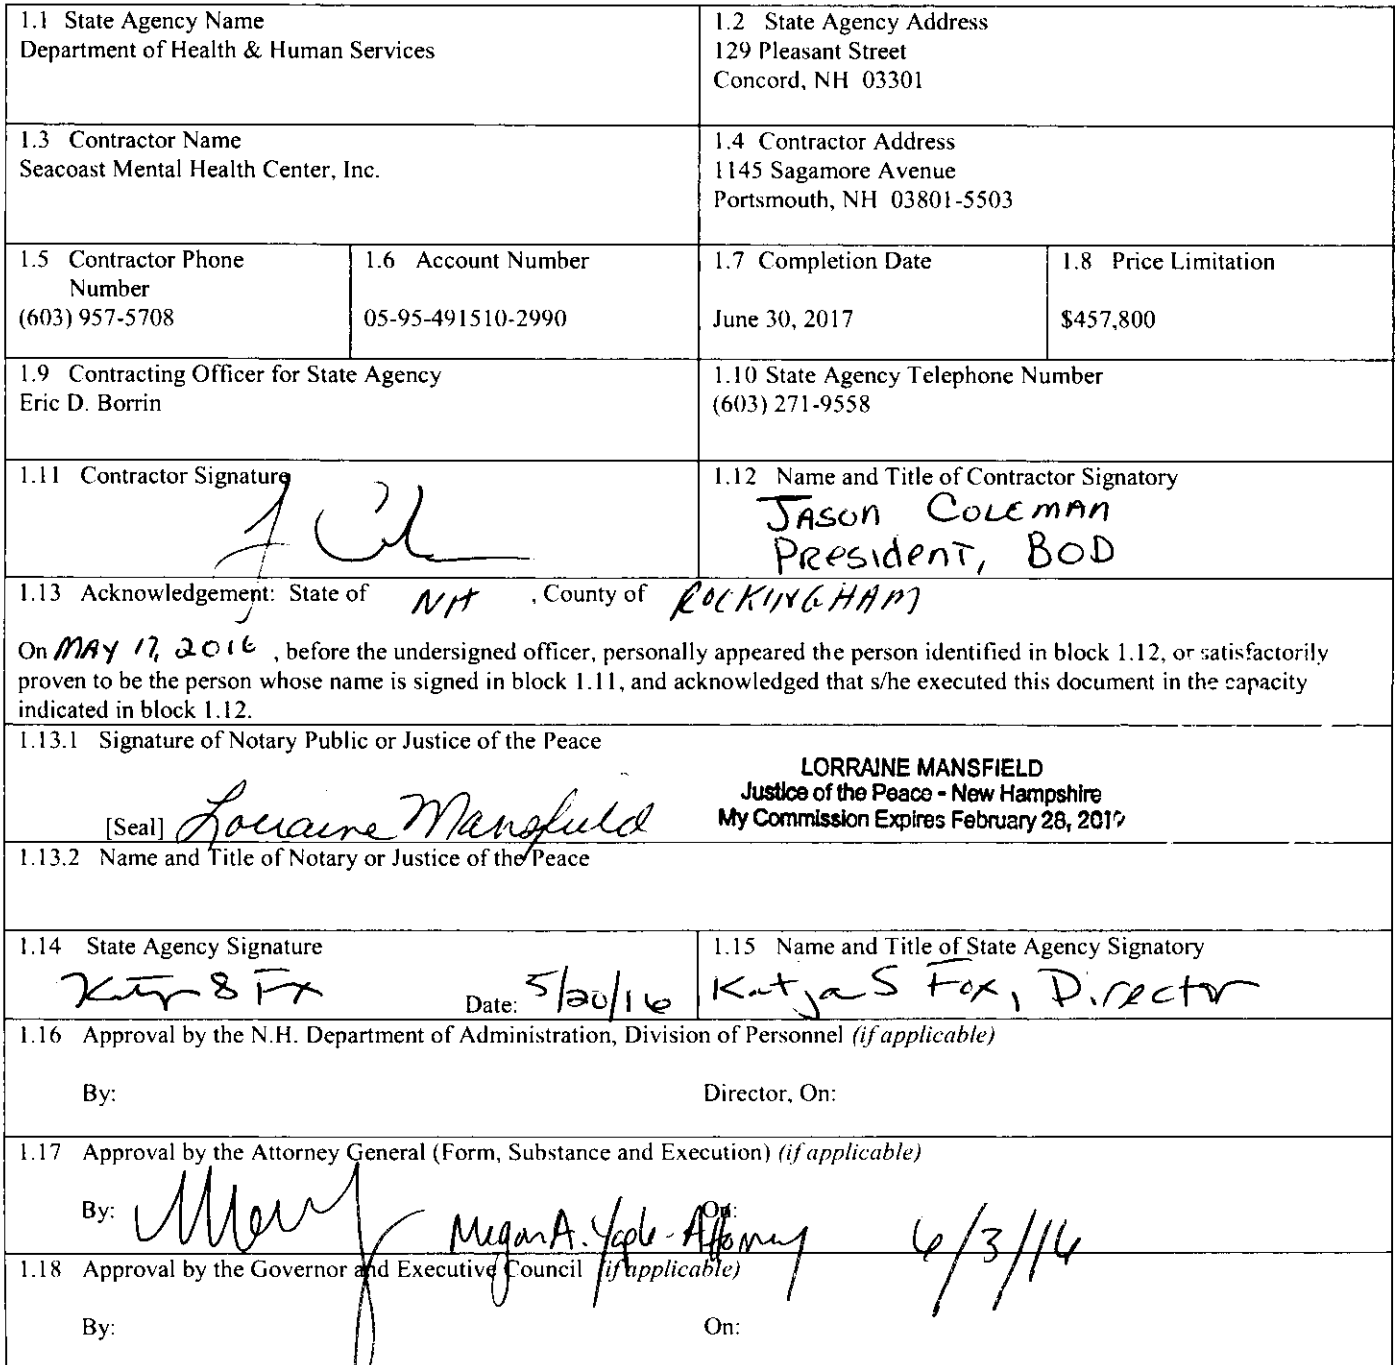 1.1 State Agency Name
Department of Health & Human Services
1.2 State Agency Address
129 Pleasant Street
Concord, NH 03301
1.3 Contractor Name
Seacoast Mental Health Center, Inc.
1.4 Contractor Address
1145 Sagamore Avenue
Portsmouth, NH 03801-5503
1.5 Contractor Phone
Number
(603) 957-5708
1.6 Account Number
05-95-491510-2990
1.7 Completion Date
June 30, 2017
1.8 Price Limitation
$457,800
1.9 Contracting Officer for State Agency
Eric D. Borrin
1.10 State Agency Telephone Number
(603) 271-9558
1.11 Contractor Signature
1.12 Name and Title of Contractor Signatory
JASON COLEMAN
PRESIDENT, BOD
1.13 Acknowledgement: State of NH , County of ROCKINGHAM
On MAY 17, 2016 , before the undersigned officer, personally appeared the person identified in block 1.12, or satisfactorily
proven to be the person whose name is signed in block 1.11, and acknowledged that s/he executed this document in the capacity
indicated in block 1.12.
1.13.1 Signature of Notary Public or Justice of the Peace
LORRAINE MANSFIELD
Justice of the Peace - New Hampshire
My Commission Expires February 28, 
[Seal] Lorraine Mansfield
1.13.2 Name and Title of Notary or Justice of the Peace
1.14 State Agency Signature
Date: 5/20/16
1.15 Name and Title of State Agency Signatory
Katja S Fox, Director
1.16 Approval by the N.H. Department of Administration, Division of Personnel (if applicable)
By:
Director, On:
1.17 Approval by the Attorney General (Form, Substance and Execution) (if applicable)
By: Megan A. Yaple - Attorney On: 6/3/16
1.18 Approval by the Governor and Executive Council (if applicable)
By:
On: